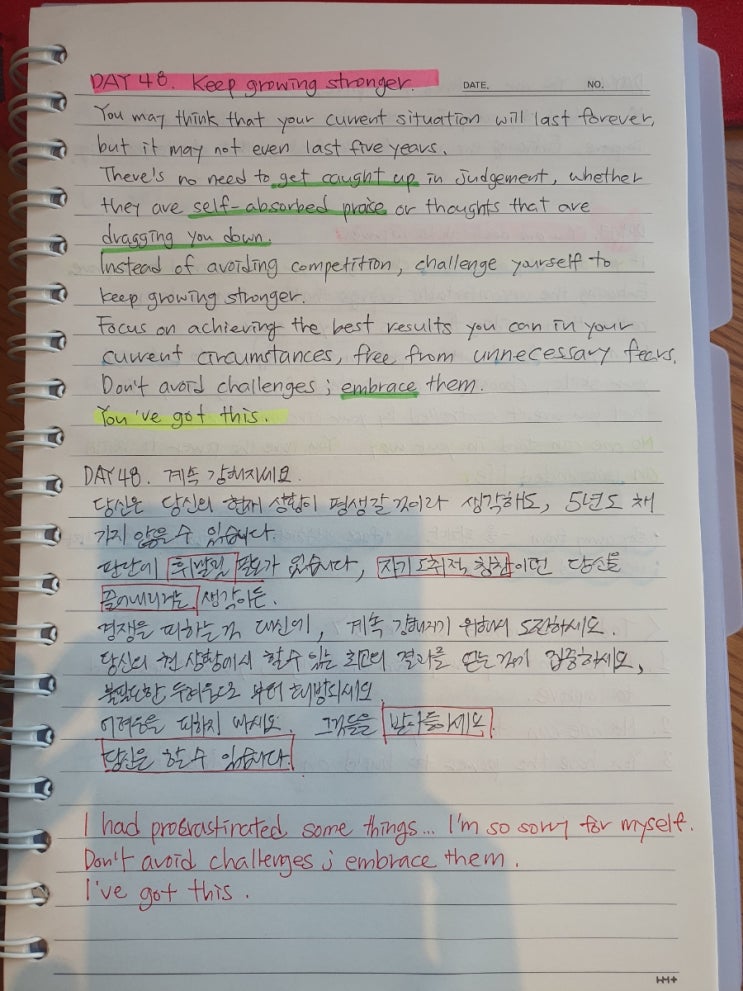 DAY 48. Keep growing stronger.
DATE. NO.
You may think that your current situation will last forever,
but it may not even last five years.
There's no need to get caught up in judgement, whether
they are self-absorbed praise or thoughts that are
dragging you down.
Instead of avoiding competition, challenge yourself to
keep growing stronger.
Focus on achieving the best results you can in your
current circumstances, free from unnecessary fears.
Don't avoid challenges; embrace them.
You've got this.
DAY 48. 계속 강해지세요.
당신은 당신의 현재 상황이 평생갈 것이라 생각해도, 5년도 채
가지 않을 수 있습니다.
판단에 휘말릴 필요가 없습니다, 자기도취적 칭찬이던 당신을
끌어내리려는 생각이든.
경쟁을 피하는 것 대신에, 계속 강해지기 위해서 도전하세요.
당신의 현 상황에서 할 수 있는 최고의 결과를 얻는 것에 집중하세요,
불필요한 두려움으로 부터 해방되세요.
어려움을 피하지 마세요. 그것들을 받아들이세요.
당신은 할 수 있습니다.
I had procrastinated some things... I'm so sorry for myself.
Don't avoid challenges; embrace them.
I've got this.